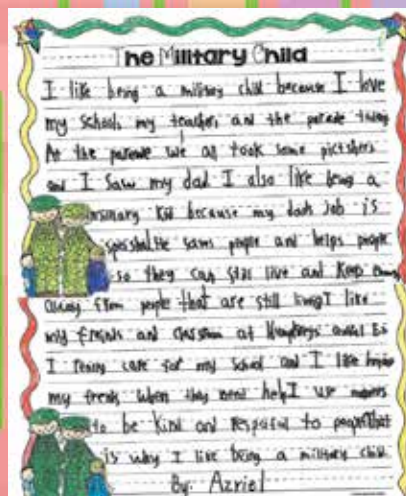 The Military Child
I like being a military child because I love
my school, my teacher, and the parade thing
At the parade we all took some pictshers
and I saw my dad. I also like being a
kid because my dads Job is
He saves people and helps people
so they can still live and keep
away from people that are still living I like
my friends and classroom at Humphreys
I care for my school and I like
my frends when they need help I use
to be kind and respacful to people that
is why I like being a military child.
By: Azriel